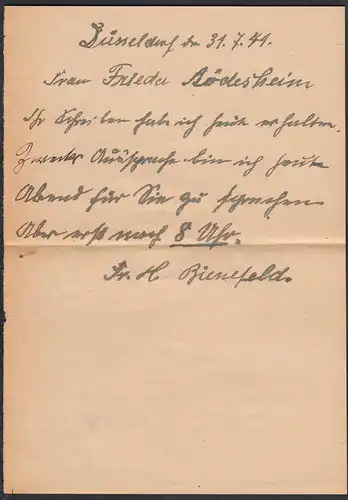 Düsseldorf de 31.7.41.
Frau Frieda Rödesheim
Ihr Schreiben habe ich heute erhalten.
Zwecks Aussprache bin ich heute
Abend für Sie zu sprechen
Aber erst nach 8 Uhr.
Fr. H Bienefeld.